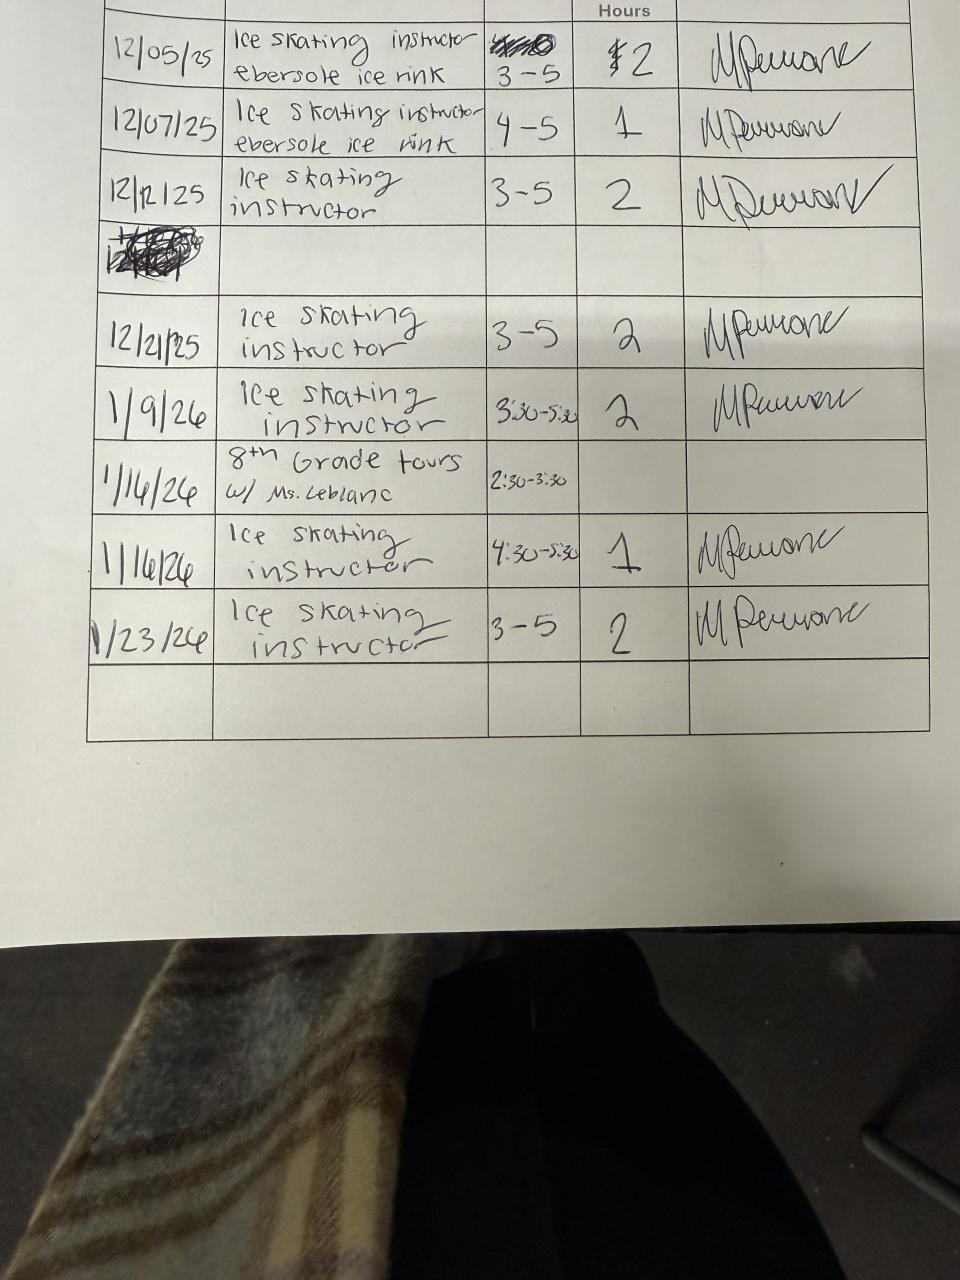 Hours
12/05/25 Ice skating instructor 3-5 2
ebersole ice rink
12/07/25 Ice skating instructor 4-5 1
ebersole ice rink
12/12/25 Ice skating 3-5 2
instructor
12/21/25 Ice skating 3-5 2
instructor
1/9/26 Ice skating 3:30-5:30 2
instructor
1/16/26 8th Grade tours 2:30-3:30
w/ Ms. Leblanc
1/16/26 Ice skating 4:30-5:30 1
instructor
1/23/26 Ice skating 3-5 2
instructor